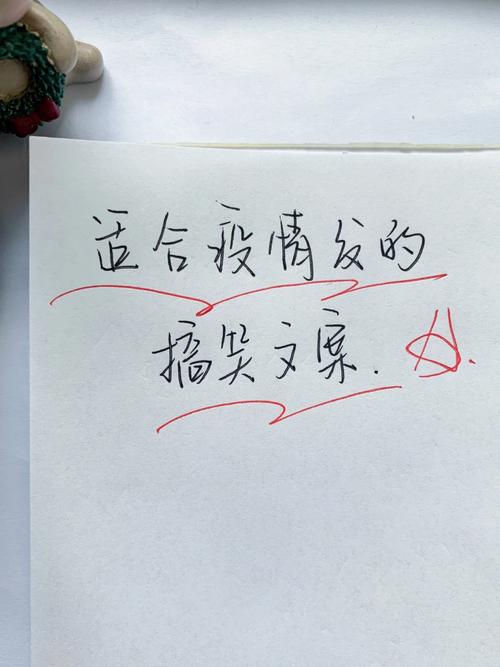 适合疫情发的
搞笑文案.